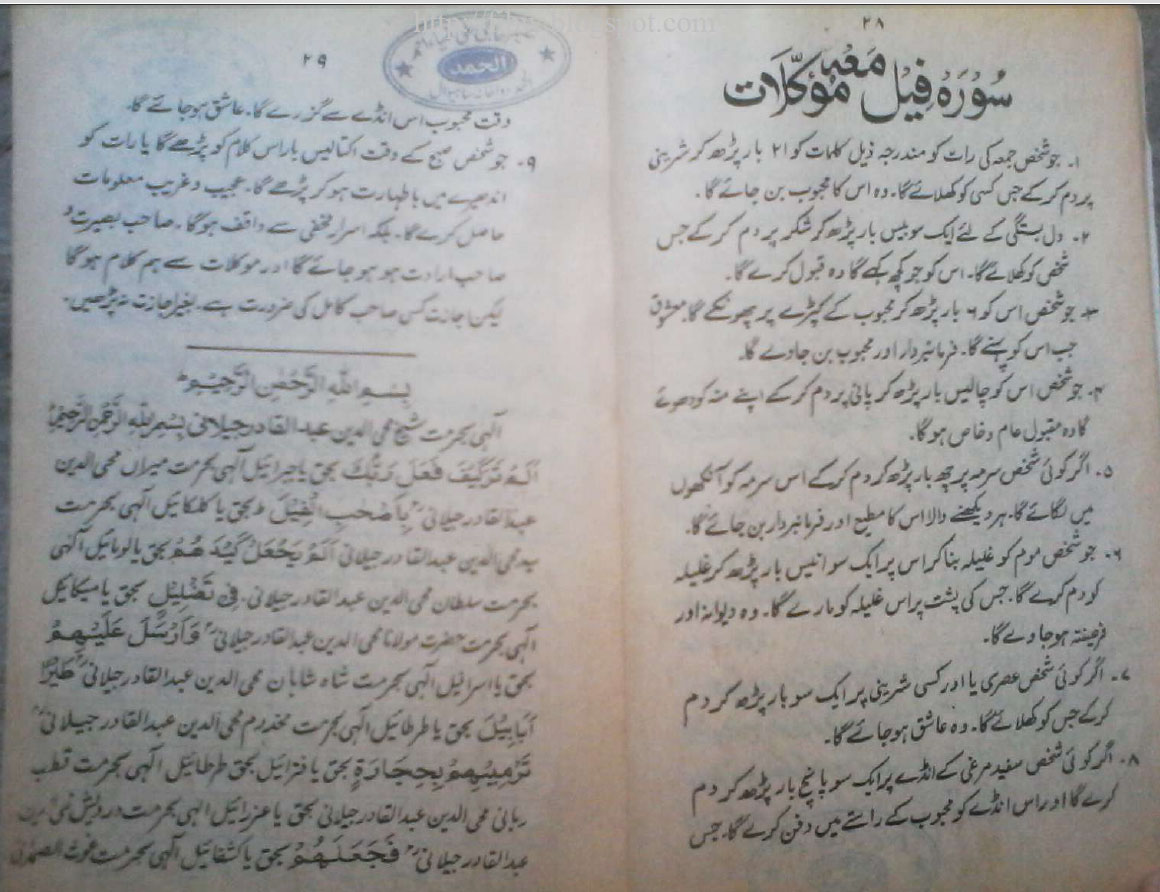 ۲۸
سُوْرَہ فِیْل مَعَہٗ مُؤَکِّلَات
۱۔ جو شخص جمعہ کی رات کو مندرجہ ذیل کلمات کو ۲۱ بار پڑھ کر شرینی
پر دم کرکے جس کسی کو کھلائے گا۔ وہ اس کا محبوب بن جائے گا۔
۲۔ دل بستگی کے لئے ایک سو بیس بار پڑھ کر شکر پر دم کرکے جس
شخص کو کھلائے گا۔ اس کو جو کچھ کہے گا وہ قبول کرے گا۔
۳۔ جو شخص اس کو ۶ بار پڑھ کر محبوب کے کپڑے پر پھونکے گا۔ معشوق
جب اس کو پہنے گا۔ فرمانبردار اور محبوب بن جاوے گا۔
۴۔ جو شخص اس کو چالیس بار پڑھ کر پانی پر دم کرکے اپنے منہ کو دھوئے
گا وہ مقبول عام و خاص ہوگا۔
۵۔ اگر کوئی شخص سرمہ پر چھ بار پڑھ کر دم کرکے اس سرمہ کو آنکھوں
میں لگائے گا۔ ہر دیکھنے والا اس کا مطیع اور فرمانبردار بن جائے گا۔
۶۔ جو شخص موم کو غلیلہ بنا کر اس پر ایک سو انیس بار پڑھ کر غلیلہ
کو دم کرے گا۔ جس کی پشت پر اس غلیلہ کو مارے گا۔ وہ دیوانہ اور
فریفتہ ہو جاوے گا۔
۷۔ اگر کوئی شخص عصری یا اور کسی شرینی پر ایک سو بار پڑھ کر دم
کرکے جس کو کھلائے گا۔ وہ عاشق ہو جائے گا۔
۸۔ اگر کوئی شخص سفید مرغی کے انڈے پر ایک سو پانچ بار پڑھ کر دم
کرے گا اور اس انڈے کو محبوب کے راستے میں دفن کرے گا۔ جس
۲۹
الحمد
وقت محبوب اس انڈے سے گزرے گا۔ عاشق ہو جائے گا۔
۹۔ جو شخص صبح کے وقت اکتالیس بار اس کلام کو پڑھے گا یا رات کو
اندھیرے میں باطہارت ہو کر پڑھے گا۔ عجیب و غریب معلومات
حاصل کرے گا۔ بلکہ اسرار مخفی سے واقف ہوگا۔ صاحب بصیرت و
صاحب ارادت ہو ہو جائے گا اور موکلات سے ہم کلام ہوگا
لیکن اجازت کسی صاحب کامل کی ضرورت ہے۔ بغیر اجازت نہ پڑھیں۔
بِسْمِ اللہِ الرَّحْمٰنِ الرَّحِیْمِ
الٰہی بحرمت شیخ محی الدین عبدالقادر جیلانی بِسْمِ اللہِ الرَّحْمٰنِ الرَّحِیْمِ
اَلَمْ تَرَکَیْفَ فَعَلَ رَبُّکَ بحق یا جبرائیل الٰہی بحرمت میراں محی الدین
عبدالقادر جیلانی بِاَصْحٰبِ الْفِیْلَ بحق یا کلکائیل الٰہی بحرمت
سید محی الدین عبدالقادر جیلانی اَلَمْ یَجْعَلْ کَیْدَھُمْ بحق یا لومائیل الٰہی
بحرمت سلطان محی الدین عبدالقادر جیلانی۔ فِیْ تَضْلِیْلٍ بحق یا میکائیل
الٰہی بحرمت حضرت مولانا محی الدین عبدالقادر جیلانی وَاَرْسَلَ عَلَیْہِمْ
بحق یا اسرائیل الٰہی بحرمت شاہ شاہان محی الدین عبدالقادر جیلانی طَیْرًا
اَبَابِیْلَ بحق یا طرطائیل الٰہی بحرمت مخدوم محی الدین عبدالقادر جیلانی
تَرْمِیْہِمْ بِحِجَارَۃٍ بحق یا فزائیل بحق طرطائیل الٰہی بحرمت قطب
ربانی محی الدین عبدالقادر جیلانی بحق یا عزرائیل الٰہی بحرمت درویش محی الدین
عبدالقادر جیلانی فَجَعَلَھُمْ بحق یا کشفائیل الٰہی بحرمت غوث الصمدانی